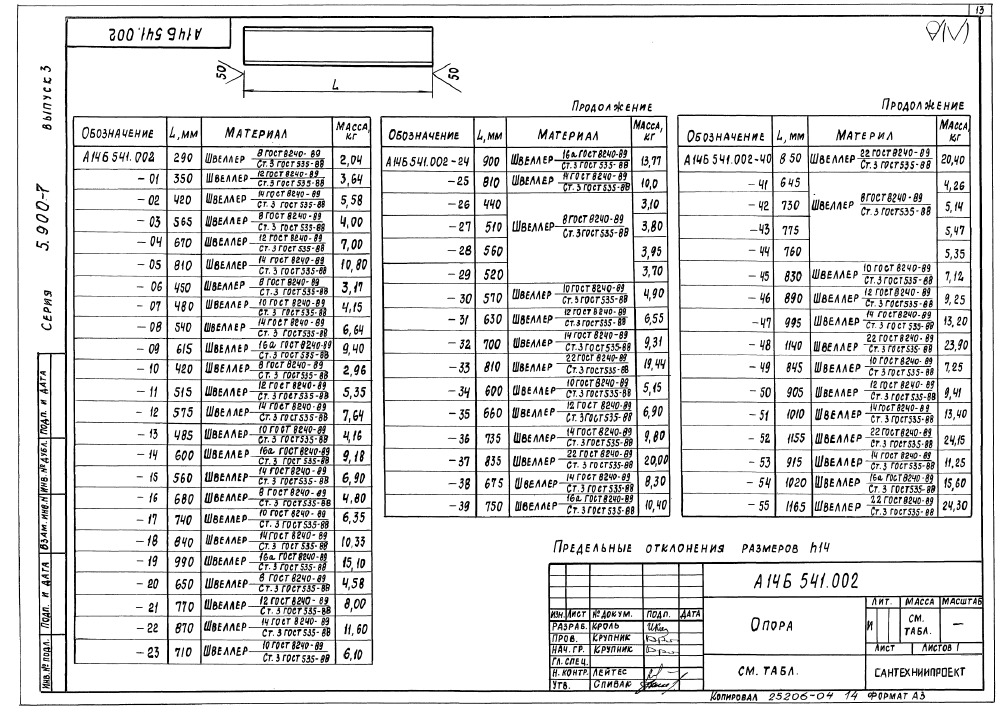 13
А14Б 541.002
50
50
L
Серия 5.900-7 выпуск 3
Обозначение L, мм Материал Масса, кг
А14Б 541.002 290 Швеллер 8 ГОСТ 8240-89 / Ст. 3 ГОСТ 535-88 2,04
-01 350 Швеллер 12 ГОСТ 8240-89 / Ст. 3 ГОСТ 535-88 3,64
-02 420 Швеллер 14 ГОСТ 8240-89 / Ст. 3 ГОСТ 535-88 5,58
-03 565 Швеллер 8 ГОСТ 8240-89 / Ст. 3 ГОСТ 535-88 4,00
-04 670 Швеллер 12 ГОСТ 8240-89 / Ст. 3 ГОСТ 535-88 7,00
-05 810 Швеллер 14 ГОСТ 8240-89 / Ст. 3 ГОСТ 535-88 10,80
-06 450 Швеллер 8 ГОСТ 8240-89 / Ст. 3 ГОСТ 535-88 3,17
-07 480 Швеллер 10 ГОСТ 8240-89 / Ст. 3 ГОСТ 535-88 4,15
-08 540 Швеллер 14 ГОСТ 8240-89 / Ст. 3 ГОСТ 535-88 6,64
-09 615 Швеллер 16а ГОСТ 8240-89 / Ст. 3 ГОСТ 535-88 9,40
-10 420 Швеллер 8 ГОСТ 8240-89 / Ст. 3 ГОСТ 535-88 2,96
-11 515 Швеллер 12 ГОСТ 8240-89 / Ст. 3 ГОСТ 535-88 5,35
-12 575 Швеллер 14 ГОСТ 8240-89 / Ст. 3 ГОСТ 535-88 7,64
-13 485 Швеллер 10 ГОСТ 8240-89 / Ст. 3 ГОСТ 535-88 4,16
-14 600 Швеллер 16а ГОСТ 8240-89 / Ст. 3 ГОСТ 535-88 9,18
-15 560 Швеллер 14 ГОСТ 8240-89 / Ст. 3 ГОСТ 535-88 6,90
-16 680 Швеллер 8 ГОСТ 8240-89 / Ст. 3 ГОСТ 535-88 4,80
-17 740 Швеллер 10 ГОСТ 8240-89 / Ст. 3 ГОСТ 535-88 6,35
-18 840 Швеллер 14 ГОСТ 8240-89 / Ст. 3 ГОСТ 535-88 10,33
-19 990 Швеллер 16а ГОСТ 8240-89 / Ст. 3 ГОСТ 535-88 15,10
-20 650 Швеллер 8 ГОСТ 8240-89 / Ст. 3 ГОСТ 535-88 4,58
-21 770 Швеллер 12 ГОСТ 8240-89 / Ст. 3 ГОСТ 535-88 8,00
-22 870 Швеллер 14 ГОСТ 8240-89 / Ст. 3 ГОСТ 535-88 11,60
-23 710 Швеллер 10 ГОСТ 8240-89 / Ст. 3 ГОСТ 535-88 6,10
Продолжение
Обозначение L, мм Материал Масса, кг
А14Б 541.002-24 900 Швеллер 16а ГОСТ 8240-89 / Ст. 3 ГОСТ 535-88 13,77
-25 810 Швеллер 14 ГОСТ 8240-89 / Ст. 3 ГОСТ 535-88 10,0
-26 440 3,10
-27 510 Швеллер 8 ГОСТ 8240-89 / Ст. 3 ГОСТ 535-88 3,80
-28 560 3,95
-29 520 3,70
-30 570 Швеллер 10 ГОСТ 8240-89 / Ст. 3 ГОСТ 535-88 4,90
-31 630 Швеллер 12 ГОСТ 8240-89 / Ст. 3 ГОСТ 535-88 6,55
-32 700 Швеллер 14 ГОСТ 8240-89 / Ст. 3 ГОСТ 535-88 9,31
-33 810 Швеллер 22 ГОСТ 8240-89 / Ст. 3 ГОСТ 535-88 19,44
-34 600 Швеллер 10 ГОСТ 8240-89 / Ст. 3 ГОСТ 535-88 5,15
-35 660 Швеллер 12 ГОСТ 8240-89 / Ст. 3 ГОСТ 535-88 6,90
-36 735 Швеллер 14 ГОСТ 8240-89 / Ст. 3 ГОСТ 535-88 9,80
-37 835 Швеллер 22 ГОСТ 8240-89 / Ст. 3 ГОСТ 535-88 20,00
-38 675 Швеллер 14 ГОСТ 8240-89 / Ст. 3 ГОСТ 535-88 8,30
-39 750 Швеллер 16а ГОСТ 8240-89 / Ст. 3 ГОСТ 535-88 10,40
Продолжение
Обозначение L, мм Материл Масса, кг
А14Б 541.002-40 850 Швеллер 22 ГОСТ 8240-89 / Ст. 3 ГОСТ 535-88 20,40
-41 645 4,26
-42 730 Швеллер 8 ГОСТ 8240-89 / Ст. 3 ГОСТ 535-88 5,14
-43 775 5,47
-44 760 5,35
-45 830 Швеллер 10 ГОСТ 8240-89 / Ст. 3 ГОСТ 535-88 7,12
-46 890 Швеллер 12 ГОСТ 8240-89 / Ст. 3 ГОСТ 535-88 9,25
-47 995 Швеллер 14 ГОСТ 8240-89 / Ст. 3 ГОСТ 535-88 13,20
-48 1140 Швеллер 22 ГОСТ 8240-89 / Ст. 3 ГОСТ 535-88 23,90
-49 845 Швеллер 10 ГОСТ 8240-89 / Ст. 3 ГОСТ 535-88 7,25
-50 905 Швеллер 12 ГОСТ 8240-89 / Ст. 3 ГОСТ 535-88 9,41
-51 1010 Швеллер 14 ГОСТ 8240-89 / Ст. 3 ГОСТ 535-88 13,40
-52 1155 Швеллер 22 ГОСТ 8240-89 / Ст. 3 ГОСТ 535-88 24,15
-53 915 Швеллер 14 ГОСТ 8240-89 / Ст. 3 ГОСТ 535-88 11,25
-54 1020 Швеллер 16а ГОСТ 8240-89 / Ст. 3 ГОСТ 535-88 15,60
-55 1165 Швеллер 22 ГОСТ 8240-89 / Ст. 3 ГОСТ 535-88 24,30
Предельные отклонения размеров h14
Инв. № подл. Подп. и дата Взам. инв. № Инв. № дубл. Подп. и дата
Изм. Лист № докум. Подп. Дата
Разраб. Кроль
Пров. Крупник
Нач. гр. Крупник
Гл. спец.
Н. контр. Лейтес
Утв. Спивак
А14Б 541.002
Опора
Лит. Масса Масштаб
И см. табл. —
Лист Листов 1
см. табл.
Сантехниипроект
Копировал 25206-04 14 Формат А3